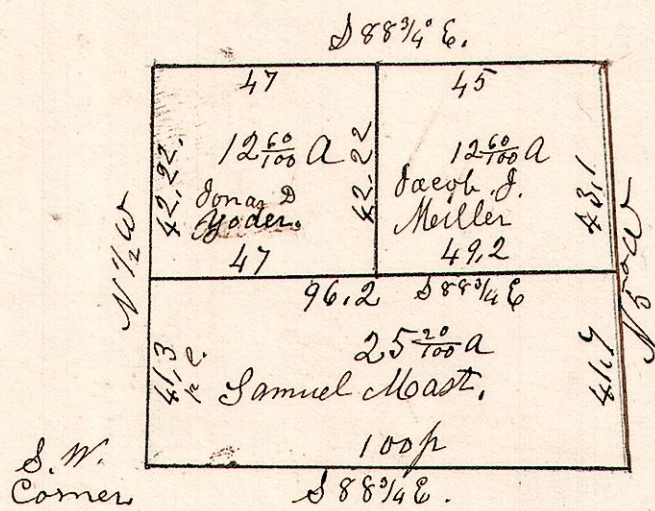 S 88 3/4° E.
47
45
42,22.
12 60/100 A
Jonas D
Yoder.
47
42-22
12 60/100 A
Jacob. J.
Meiller
49,2
43,1
N 1/2 W
N 5° W
96,2 S 88 3/4 E
41,3
25 20/100 A
Samuel Mast.
100 p
S. W.
Corner
S 88 3/4 E.